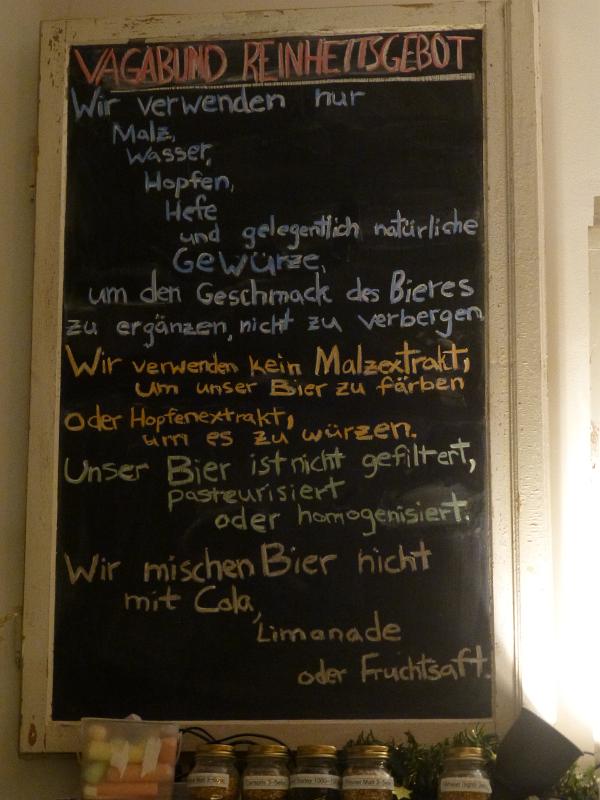 VAGABUND REINHEITSGEBOT
Wir verwenden nur
Malz,
Wasser,
Hopfen,
Hefe
und gelegentlich natürliche
Gewürze,
um den Geschmack des Bieres
zu ergänzen, nicht zu verbergen
Wir verwenden kein Malzextrakt,
um unser Bier zu färben
oder Hopfenextrakt,
um es zu würzen.
Unser Bier ist nicht gefiltert,
pasteurisiert
oder homogenisiert.
Wir mischen Bier nicht
mit Cola,
Limonade
oder Fruchtsaft.